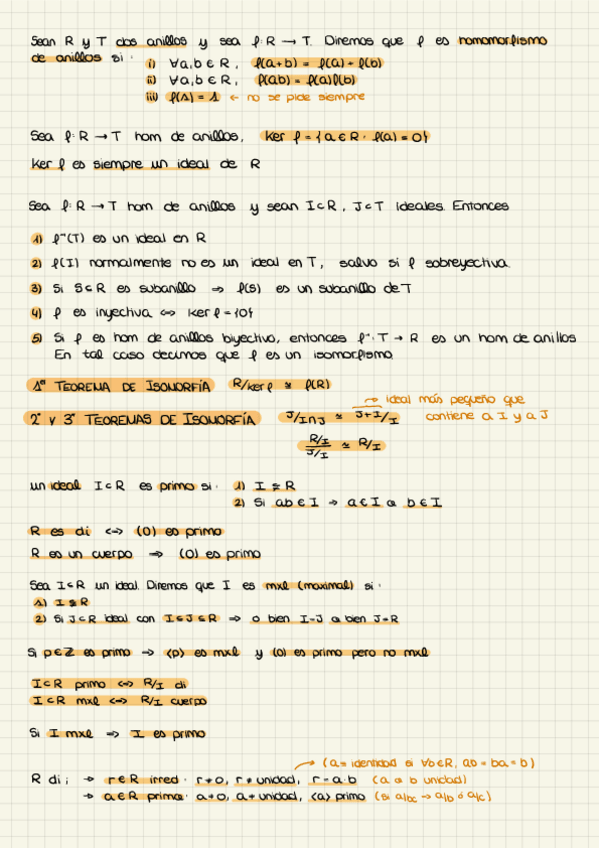 Sean R y T dos anillos y sea f: R → T. Diremos que f es homomorfismo
de anillos si:
i) ∀a,b ∈ R, f(a+b) = f(a) + f(b)
ii) ∀a,b ∈ R, f(ab) = f(a)f(b)
iii) f(1) = 1 ← no se pide siempre
Sea f: R → T hom de anillos, Ker f = {a ∈ R : f(a) = 0}
Ker f es siempre un ideal de R
Sea f: R → T hom de anillos y sean I ⊂ R, J ⊂ T ideales. Entonces
1) f⁻¹(T) es un ideal en R
2) f(I) normalmente no es un ideal en T, salvo si f sobreyectiva.
3) Si S ⊆ R es subanillo ⇒ f(S) es un subanillo de T
4) f es inyectiva ⇔ Ker f = {0}
5) Si f es hom de anillos biyectivo, entonces f⁻¹: T → R es un hom de anillos
En tal caso decimos que f es un isomorfismo.
1º TEOREMA DE ISOMORFÍA R/Ker f ≅ f(R)
2º Y 3º TEOREMAS DE ISOMORFÍA J/I∩J ≅ J+I/I → ideal más pequeño que
contiene a I y a J
R/I / J/I ≅ R/I
un ideal I ⊂ R es primo si: 1) I ⊊ R
2) Si ab ∈ I ⇒ a ∈ I o b ∈ I
R es di ⇔ (0) es primo
R es un cuerpo ⇒ (0) es primo
Sea I ⊂ R un ideal. Diremos que I es mxl (maximal) si:
1) I ⊊ R
2) Si J ⊂ R ideal con I ⊆ J ⊆ R ⇒ o bien I=J o bien J=R
Si p ∈ ℤ es primo → (p) es mxl y (0) es primo pero no mxl
I ⊂ R primo ⇔ R/I di
I ⊂ R mxl ⇔ R/I cuerpo
Si I mxl ⇒ I es primo
→ (a = identidad si ∀b ∈ R, ab = ba = b)
R di; → r ∈ R irred: r ≠ 0, r ≠ unidad, r = a·b (a o b unidad)
→ a ∈ R primo: a ≠ 0, a ≠ unidad, (a) primo (si a/bc → a/b ó a/c)